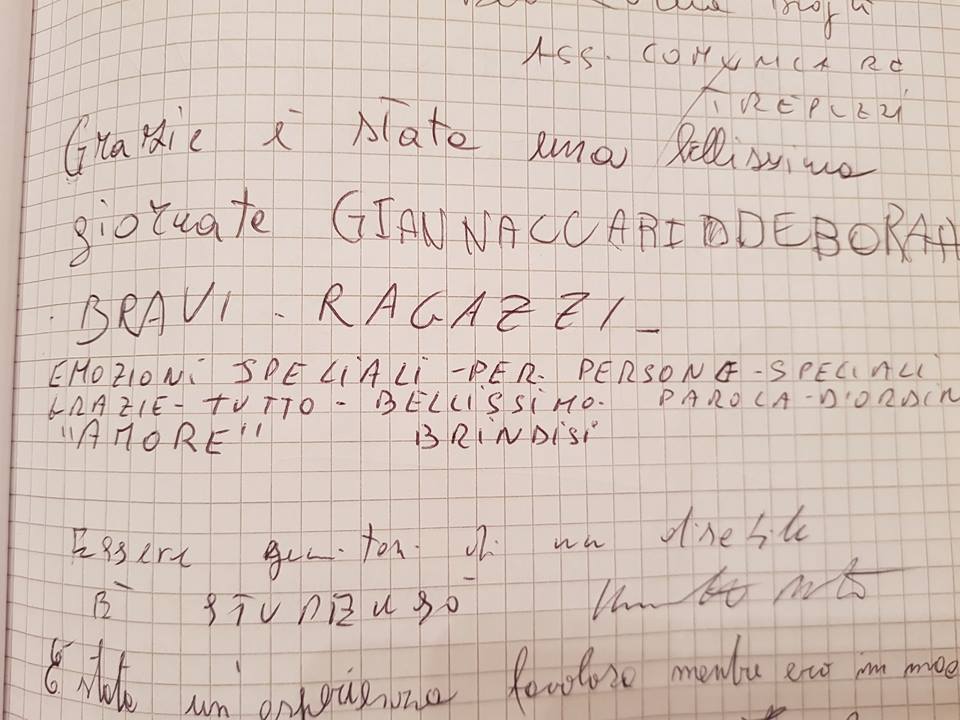 ASS. COMUNICARE
TREPUZZI
Grazie è stata una bellissima
giornate GIANNACCARI DDEBORAH
BRAVI - RAGAZZI_
EMOZIONI SPECIALI - PER. PERSONE - SPECIALI
GRAZIE - TUTTO - BELLISSIMO. PAROLA - D'ORDIN
"AMORE" BRINDISI
Essere genitori di un disabile
È
È stata un esperienza favolosa mentre ero in